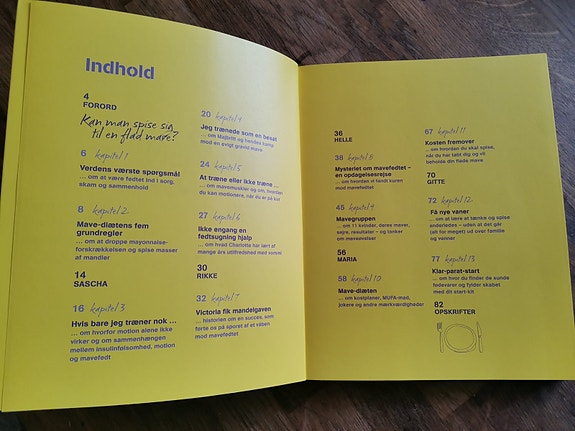 Indhold
4
FORORD
Kan man spise sig
til en flad mave?
6 kapitel 1
Verdens værste spørgsmål
... om at være fedtet ind i sorg,
skam og sammenhold
8 kapitel 2
Mave-diætens fem
grundregler
... om at droppe mayonnaise-
forskrækkelsen og spise masser
af mandler
14
SASCHA
16 kapitel 3
Hvis bare jeg træner nok ...
... om hvorfor motion alene ikke
virker og om sammenhængen
mellem insulinfølsomhed, motion
og mavefedt
20 kapitel 4
Jeg trænede som en besat
... om Majbritt og hendes kamp
mod en evigt gravid mave
24 kapitel 5
At træne eller ikke træne ...
... om mavemuskler og om, hvordan
du kan motionere, når du er på kur
27 kapitel 6
Ikke engang en
fedtsugning hjalp
... om hvad Charlotte har lært af
mange års utilfredshed med sømmet
30
RIKKE
32 kapitel 7
Victoria fik mandelgaven
... historien om en succes, som
førte os på sporet af et våben
mod mavefedtet
36
HELLE
38 kapitel 8
Mysteriet om mavefedtet –
en opdagelsesrejse
... om hvordan vi fandt kuren
mod mavefedtet
45 kapitel 9
Mavegruppen
... om 11 kvinder, deres maver,
sejre, resultater – og tanker
om mavemåvser
56
MARIA
58 kapitel 10
Mave-diæten
... om kostplaner, MUFA-mad,
jokere og andre mærkværdigheder
67 kapitel 11
Kosten fremover
... om hvordan du skal spise,
når du har tabt dig og vil
beholde din flade mave
70
GITTE
72 kapitel 12
Få nye vaner
... om at lære at tænke og spise
anderledes – uden at det går
(alt for meget) ud over familie
og vanner
77 kapitel 13
Klar-parat-start
... om hvor du finder de sunde
fødevarer og fylder skabet
med dit start-kit
82
OPSKRIFTER